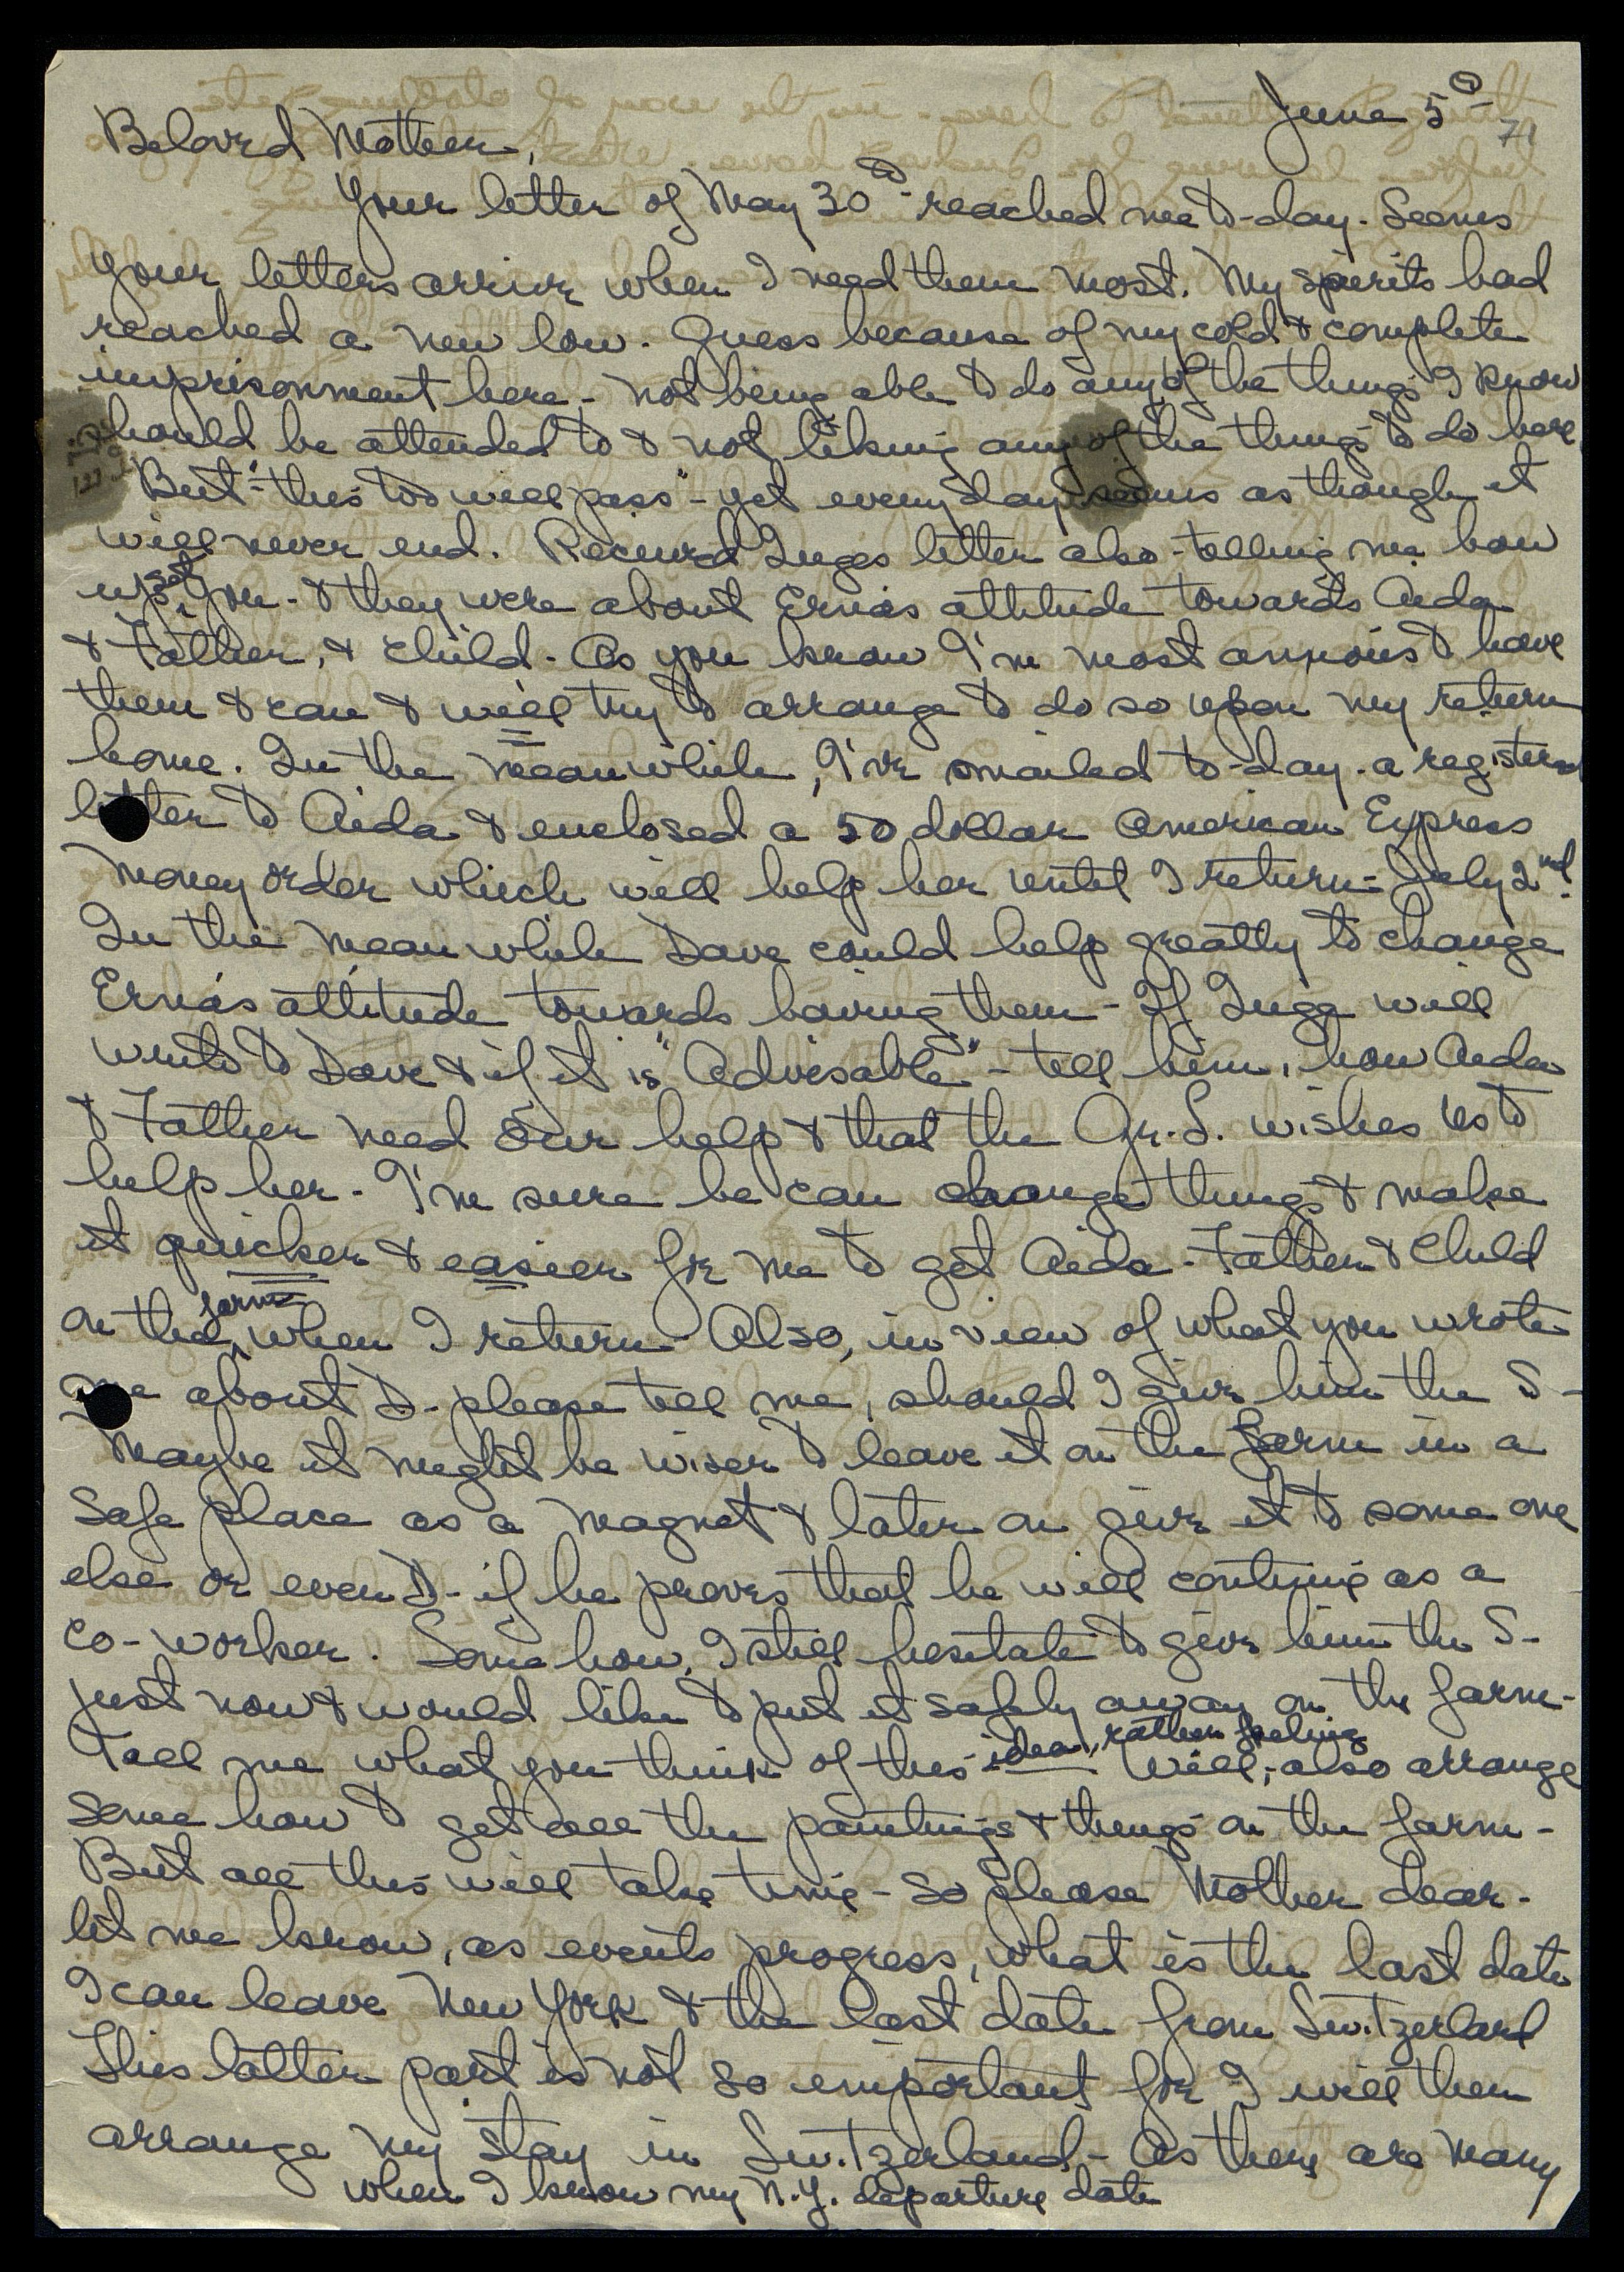 June 5th
71
Beloved Mother,
Your letter of May 30th - reached me to-day. Seems
your letters arrive when I need them most. My spirits had
reached a new low. Guess because of my cold & complete
imprisonment here - not being able to do any of the things I know
should be attended to & not liking any of the things to do here.
But "this too will pass" - yet every day seems as though it
will never end. Received Inges letter also - telling me how
upset you - & they were about Erna's attitude towards Aida
& Father, & child. As you know I'm most anxious to have
them & can & will try to arrange to do so upon my return
home. In the meanwhile, I've mailed to-day - a registered
letter to Aida & enclosed a 50 dollar American Express
money order which will help her until I return - July 2nd.
In the meanwhile Dave could help greatly to change
Erna's attitude towards having them - If Inge will
write to Dave & if it is "Advisable" - tell him, how Aida
& Father need our help & that the Gr. L. wishes us to
help her - I'm sure he can change things & make
it quicker & easier for me to get Aida - Father & Child
on the farm when I return - Also, in view of what you wrote
me about D - please tell me, should I give him the S -
Maybe it might be wiser to leave it on the farm in a
safe place as a magnet & later on give it to some one
else or even D - if he proves that he will continue as a
co-worker. Some how, I still hesitate to give him the S -
just now & would like to put it safely away on the farm -
Tell me what you think of this - idea, rather feeling Will, also arrange
some how to get all the paintings & things on the farm -
But all this will take time - so please Mother dear -
let me know, as events progress, what is the last date
I can leave New York & the last date from Switzerland
This latter part is not so important for I will then
arrange my stay in Switzerland - As there are many
when I know my N.Y. departure date